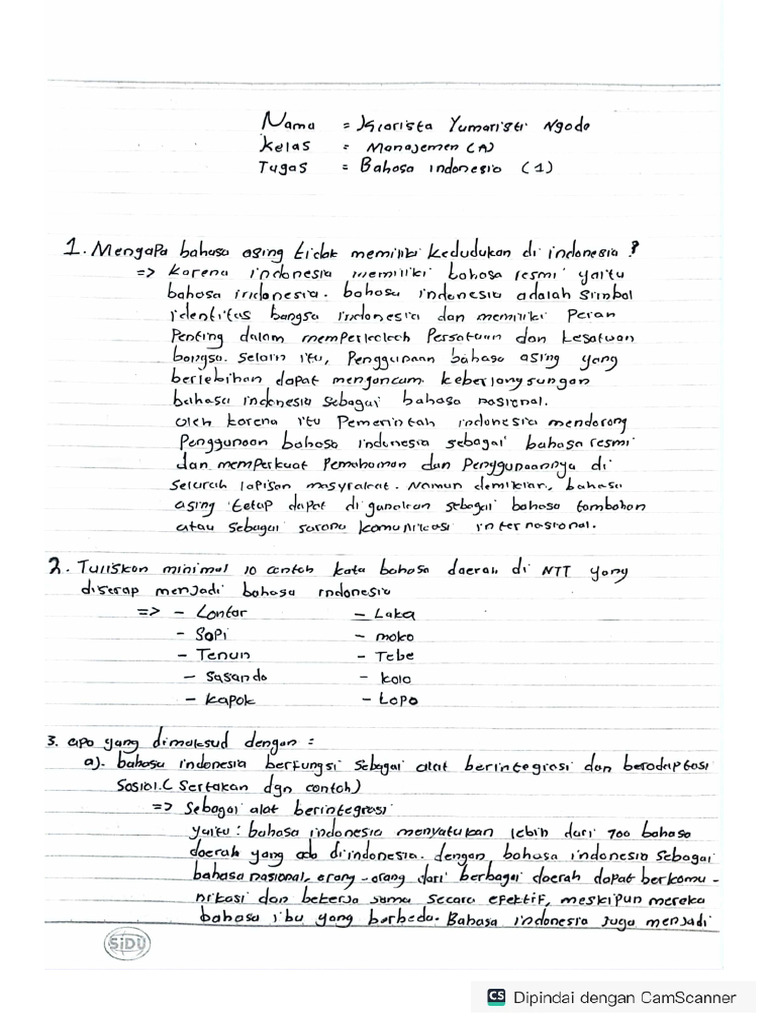 Nama = Kiarista Yumaristi Ngodo
Kelas = Manajemen (A)
Tugas = Bahasa indonesia (1)
1. Mengapa bahasa asing tidak memiliki kedudukan di indonesia ?
=> Karena indonesia memiliki bahasa resmi yaitu
bahasa indonesia. bahasa indonesia adalah simbol
identitas bangsa indonesia dan memiliki peran
penting dalam memperkokoh Persatuan dan kesatuan
bangsa. selain itu, Penggunaan bahasa asing yang
berlebihan dapat mengancam keberlangsungan
bahasa indonesia sebagai bahasa nasional.
oleh karena itu Pemerintah indonesia mendorong
Penggunaan bahasa indonesia sebagai bahasa resmi
dan memperkuat Pemahaman dan Penggunaannya di
seluruh lapisan masyrakat. Namun demikian, bahasa
asing tetap dapat di gunakan sebagai bahasa tambahan
atau sebagai sarana komunikasi internasional.
2. Tuliskan minimal 10 contoh kata bahasa daerah di NTT yang
diserap menjadi bahasa indonesia
=> - Lontar - Laka
- Sopi - moko
- Tenun - Tebe
- Sasando - kolo
- Kapok - Lopo
3. apa yang dimaksud dengan :
a). bahasa indonesia berfungsi sebagai alat berintegrasi dan beradaptasi
sosial. (sertakan dgn contoh)
=> Sebagai alat berintegrasi
yaitu : bahasa indonesia menyatukan lebih dari 700 bahasa
daerah yang ada diindonesia. dengan bahasa indonesia sebagai
bahasa nasional, orang-orang dari berbagai daerah dapat berkomu-
nikasi dan bekerja sama secara efektif, meskipun mereka
bahasa ibu yang berbeda. Bahasa indonesia juga menjadi
SiDU
CS Dipindai dengan CamScanner